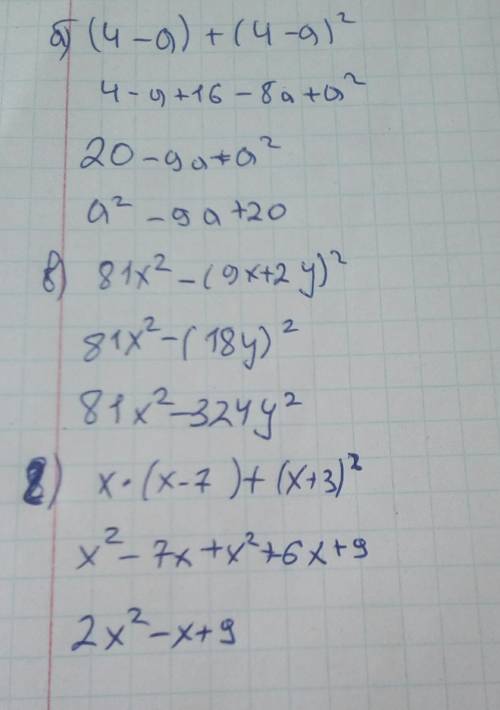 б) (4-a)+(4-a)²
4-a+16-8a+a²
20-9a+a²
a²-9a+20
в) 81x²-(9x+2y)²
81x²-(18y)²
81x²-324y²
x·(x-7)+(x+3)²
x²-7x+x²+6x+9
2x²-x+9